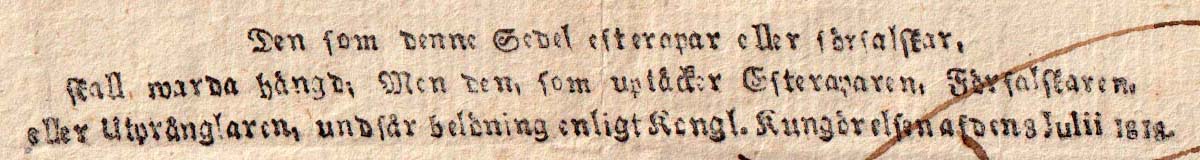 Den som denne Sedel efterapar eller förfalskar,
skall warda hängd; Men den, som uptäcker Efteraparen, Förfalskaren,
eller Utpränglaren, undfår belöning enligt Kongl. Kungörelsen af den 8 Julii 1818.